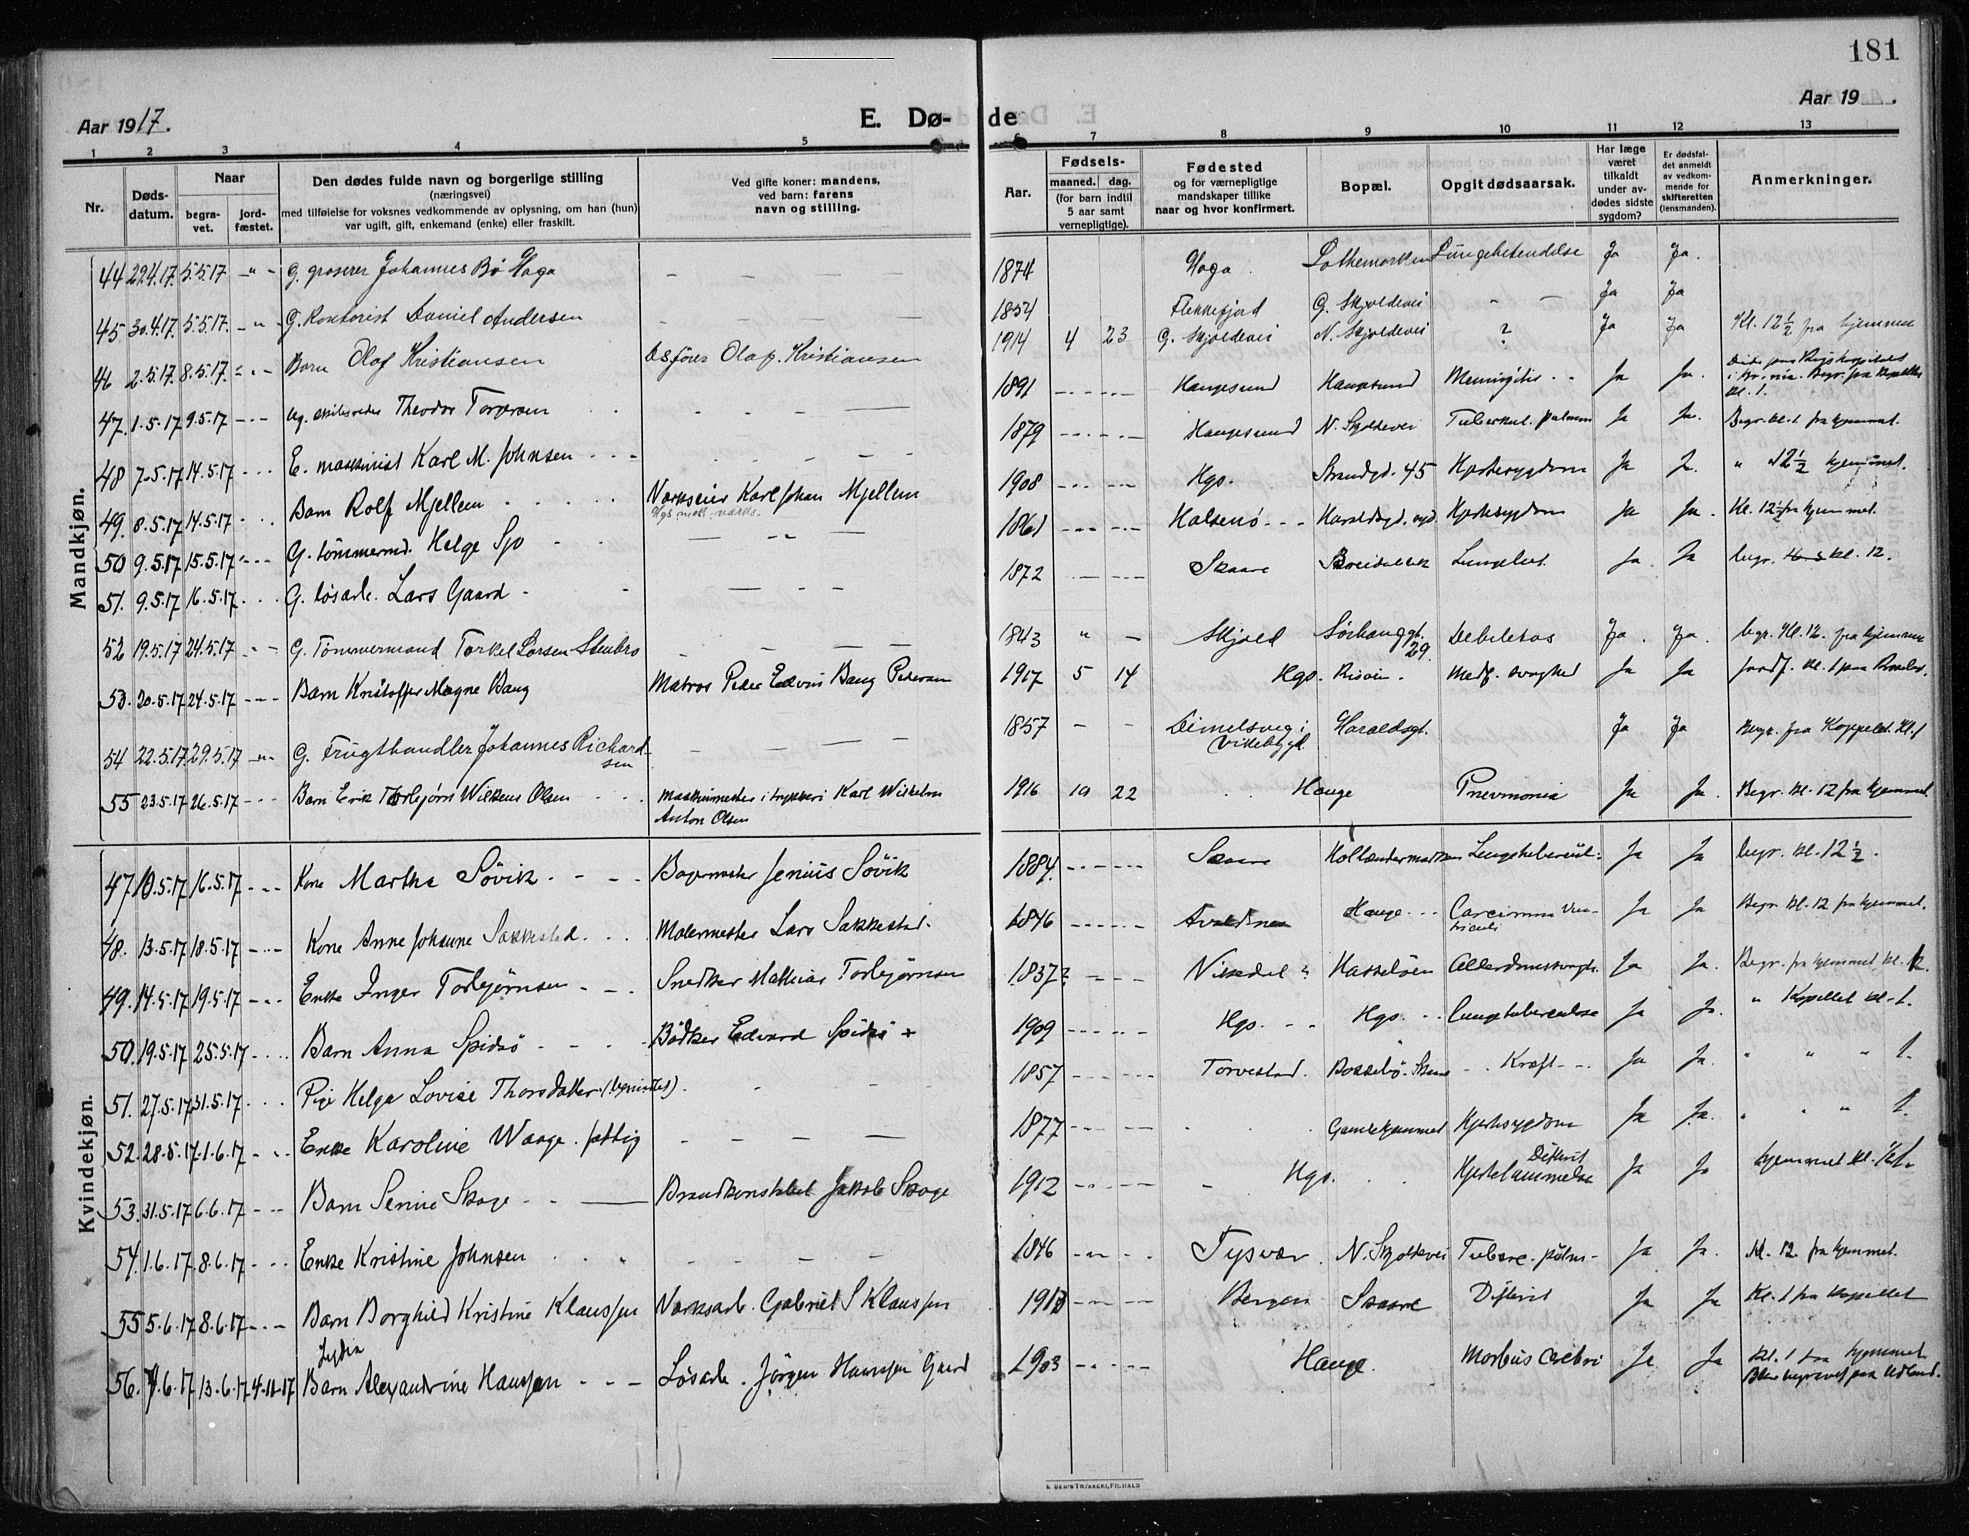 181
Aar 1917.
E. Dø- de
Aar 19 .
1 2 3 4 5 6 7 8 9 10 11 12 13
Nr.
Døds-
datum.
Naar
begra-
vet.
jord-
fæstet.
Den dødes fulde navn og borgerlige stilling
(næringsvei)
med tilføielse for voksnes vedkommende av oplysning, om han (hun)
var ugift, gift, enkemand (enke) eller fraskilt.
Ved gifte koner: mandens,
ved barn: farens
navn og stilling.
Aar.
Fødsels-
maaned. dag.
(for barn indtil
5 aar samt
vernepligtige).
Fødested
og for værnepligtige
mandskaper tillike
naar og hvor konfirmert.
Bopæl.
Opgit dødsaarsak.
Har læge
været
tilkaldt
under av-
dødes sidste
sygdom?
Er dødsfal-
det anmeldt
av vedkom-
mende for
skifteretten
(lensmanden).
Anmerkninger.
Mandkjøn.
44 29.4.17. 5.5.17 -"- G. groserer Johannes Bø Haga — — — 1874 Haga Lothemarken Lungebetendelse Ja Ja.
45 30.4.17. 5.5.17. -"- G. Kontorist Daniel Andersen — — — 1854 Flekkefjord G. Skjoldevei " — Ja Ja
46 2.5.17. 8.5.17. Barn Olaf Kristiansen Olaf. Kristiansen 1914 4 23 G. Skjoldevei N. Skjoldevei ? Ja Ja Kl. 12 1/2 fra hjemmet
47. 1.5.17 9.5.17 -"- Ug. skibsreder Theodor Torgersen 1891 Haugesund Haugesund Meningitis Ja Ja. Begr. fra Kapellet
Kl. 1.
48 7.5.17 14.5.17 E. maskinist Karl M. Johnsen 1879 Haugesund N. Skjoldevei Tuberkul. pulmon Ja Ja. Begr. kl. 1 fra hjemmet.
49. 8.5.17 14.5.17 Barn Rolf Mjellem Værkseier Karl Johan Mjellem
1908 Hgs. Strandgd. 45 Hjertesygdom Ja J. " 12 1/2 hjemmet.
50 9.5.17 15.5.17 G. tømmermd. Helge Sjo 1861 Halsenö Haraldsgd. Hjertesygdom Ja Ja. Kl. 12 1/2 fra hjemmet.
51. 9.5.17 16.5.17 G. løsarb. Lars Gaard 1872 Skaare Breidablik Lungebet. Ja. Ja begr. kl. 12.
52 19.5.17 24.5.17 G. Tömmermand Torkel Larsen Stenbro 1843 " — Skjold Sörhauggt.
29. Debilitas Ja. Ja. begr. Kl. 12. fra hjemmet
53. 20.5.17 24.5.17 Barn Kristoffer Magne Bang Matros Peder Edvin Bang Pedersen 1917 5 14 Hgs. Risöin. Medf. svaghed Ja Ja
54 22.5.17 29.5.17 G. Frugthandler Johannes Richard-
sen — 1857 — — i
Vikebygd. Haraldsgt. Ja Ja Begr. fra Kappelet. Kl. 1
55 23.5.17 26.5.17 Barn Erik Torbjørn Wilkens Olsen maskinmester i trykkeri Karl Wilhelm
Anton Olsen 1916 10 22 Hauge Pneumonia Ja Ja. Begr. kl. 12 fra hjemmet
Kvindekjøn.
47 10.5.17 16.5.17 Kone Martha Søvik Bagermester Jenius Søvik 1884. Skaare Lungetuberkul. Ja Ja begr. kl. 12 1/2.
48. 13.5.17 18.5.17 Kone Anne Johanne Sakkestad. Malermester Lars Sakkestad. 1846 Avaldsnes Hauge Carcinoma Ven-
triculi Ja Ja Begr. kl. 12 fra hjemmet.
49. 14.5.17 19.5.17 Enke Inger Torbjørnsen Snedker Mathias Torbjørnsen 1837? Vikedal ? Hasseløen Alderdomssvagh. Ja Ja. Begr. fra hjemmet kl. 12.
50. 19.5.17 25.5.17 Barn Anna Spidsö Bödker Edvard Spidsö + 1909 Hgs. Hgs. Lungetuberculose Ja Ja. " Kapellet kl. 1.
51. 27.5.17 31.5.17 Pige Helga Lovise Thorsdatter 1857 Torvestad. Skaare Kræft Ja Ja. " " " 1.
52. 28.5.17. 1.6.17 Enke Karoline Waage. fattig 1877 Gamlehjemmet Hjertesygdom Ja Ja. " " " 1.
53. 31.5.17 6.6.17 Barn Senie Skoge Brandkonstabel Jakob Skoge 1912 Hgs. Difterit
Hjertelammelse Ja Ja hjemmet kl. 1.
54. 1.6.17 8.6.17 Enke Kristine Johnsen 1846 Tysvær N. Skjoldevei Tuberc. pulm. Ja Ja. Kl. 12 fra hjemmet.
55 5.6.17 8.6.17 Barn Borghild Kristine Klaussen Værksarb. Gabriel S Klaussen Bergen Skaare Difterit Ja Ja Kl. 1 fra Kapellet
Lydia
56. 7.6.17 13.6.17 4.11.17 Barn Alexandrine Hanssen Løsarb. Jörgen Hanssen Gaard 1903 Hauge. Morbus Cerebri Ja Ja Kl. 1 fra hjemmet